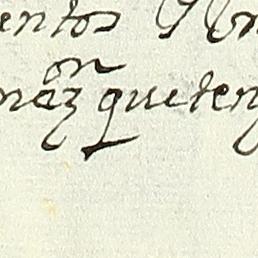 entos
on
naz que ten